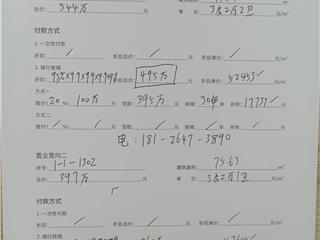 总价: 544万 元 单 价: 3房2厅2卫 元/m²
付款方式
1.一次性付款
折扣: / 折后总价: / 元 折后单价: / 元/m²
2.银行按揭
折扣: 折后总价: 495万 元 折后单价: 52453 元/m²
方式一
首付(20%) 100万 元 贷款: 395万 元 按揭: 30年 年 月供: 17737 元
方式二
首付( / %) / 元 贷款: / 元 按揭: / 年 月供: / 元
电: 181-2647-3890
置业意向二
房号: 1-1-1302 建筑面积: 74.63 m²
总价: 397万 元 单 价: 3房2厅1卫 元/m²
付款方式
1.一次性付款
折扣: / 折后总价: / 元 折后单价: / 元/m²
2.银行按揭